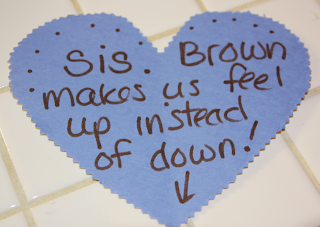 Sis. Brown
makes us feel
up instead
of down!